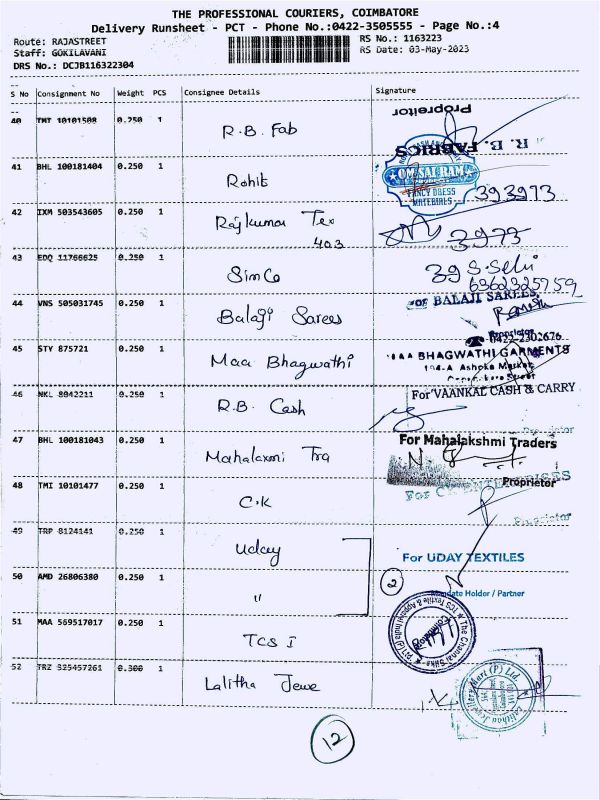 THE PROFESSIONAL COURIERS, COIMBATORE
Delivery Runsheet - PCT - Phone No.:0422-3505555 - Page No.:4
Route: RAJASTREET
RS No.: 1163223
Staff: GOKILAVANI
RS Date: 03-May-2023
DRS No.: DCJB116322304
S No Consignment No Weight PCS Consignee Details Signature
Propreitor
40 TMT 10101508 0.250 1 R.B. Fab
R. B. FABRICS
41 BHL 100181404 0.250 1 Rohit
OM SAI RAM
FANCY DRESS
MATERIALS
393973
42 IXM 503543605 0.250 1 Rajkumar Tex
403
3973
43 EDQ 11766625 0.250 1 SimCo
39 S.Selvi
6362325759
44 VNS 505031745 0.250 1 Balaji Sarees
For BALAJI SAREES,
Ramesh
Proprietor
0422-2302676
45 STY 875721 0.250 1 Maa Bhagwathi
MAA BHAGWATHI GARMENTS
104-A Ashoka Market
46 NKL 8042211 0.250 1 R.B. Cash
For VAANKAL CASH & CARRY
Proprietor
47 BHL 100181043 0.250 1 Mahalaxmi Tra
For Mahalakshmi Traders
Proprietor
48 TMI 10101477 0.250 1 C.K
For CK ENTERPRISES
Proprietor
49 TRP 8124141 0.250 1 Uday
For UDAY TEXTILES
50 AMD 26806380 0.250 1 "
2
Mandate Holder / Partner
51 MAA 569517017 0.250 1 TCS I
TCS Textile & Apparel India (P) Ltd
The Chennai Silks
52 TRZ 325457261 0.300 1 Lalitha Jewe
Lalithaa Jewellery Mart (P) Ltd.
12